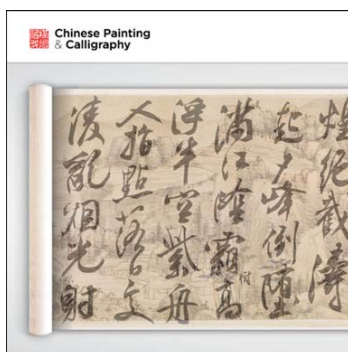 Chinese Painting
& Calligraphy
煌絕濤
起夕峰倒墮
滿江陰霜樹高
浮半空紫舟
人指點落日
凌亂烟光射